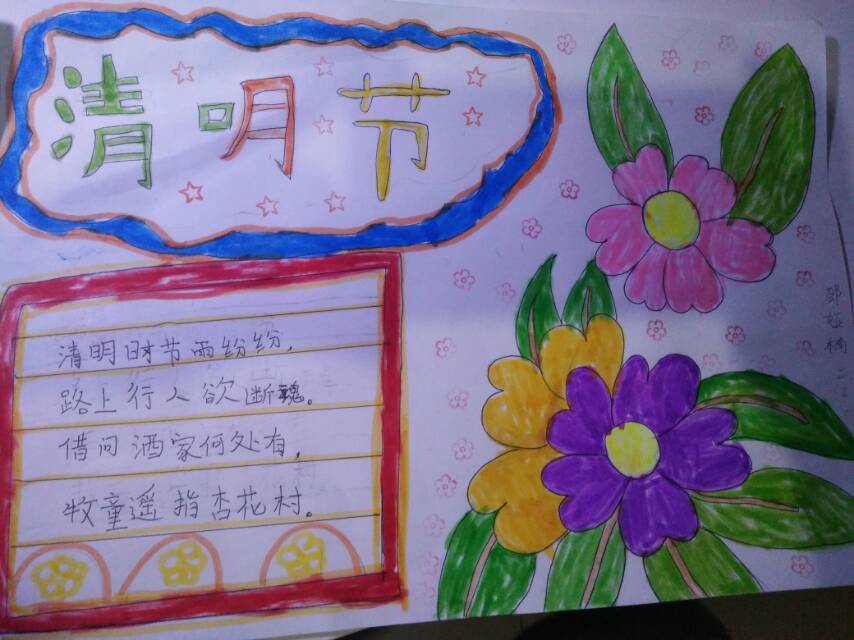 清明节
清明时节雨纷纷，
路上行人欲断魂。
借问酒家何处有，
牧童遥指杏花村。